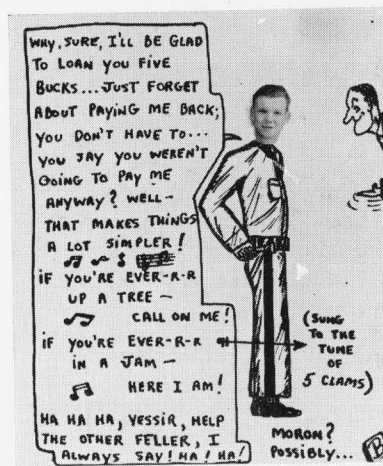 WHY, SURE, I'LL BE GLAD
TO LOAN YOU FIVE
BUCKS...JUST FORGET
ABOUT PAYING ME BACK;
YOU DON'T HAVE TO...
YOU JAY YOU WEREN'T
GOING TO PAY ME
ANYWAY? WELL-
THAT MAKES THINGS
A LOT SIMPLER!
IF YOU'RE EVER-R-R
UP A TREE-
CALL ON ME!
IF YOU'RE EVER-R-R
IN A JAM-
HERE I AM!
HA HA HA, YESSIR, HELP
THE OTHER FELLER, I
ALWAYS SAY! HA! HA!
(SUNG
TO THE
TUNE
OF
5 CLAMS)
MORON?
POSSIBLY...